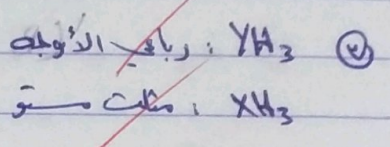 Ⓥ YH₃ : رباعي الأوجه
XH₃ : مثلث مستو